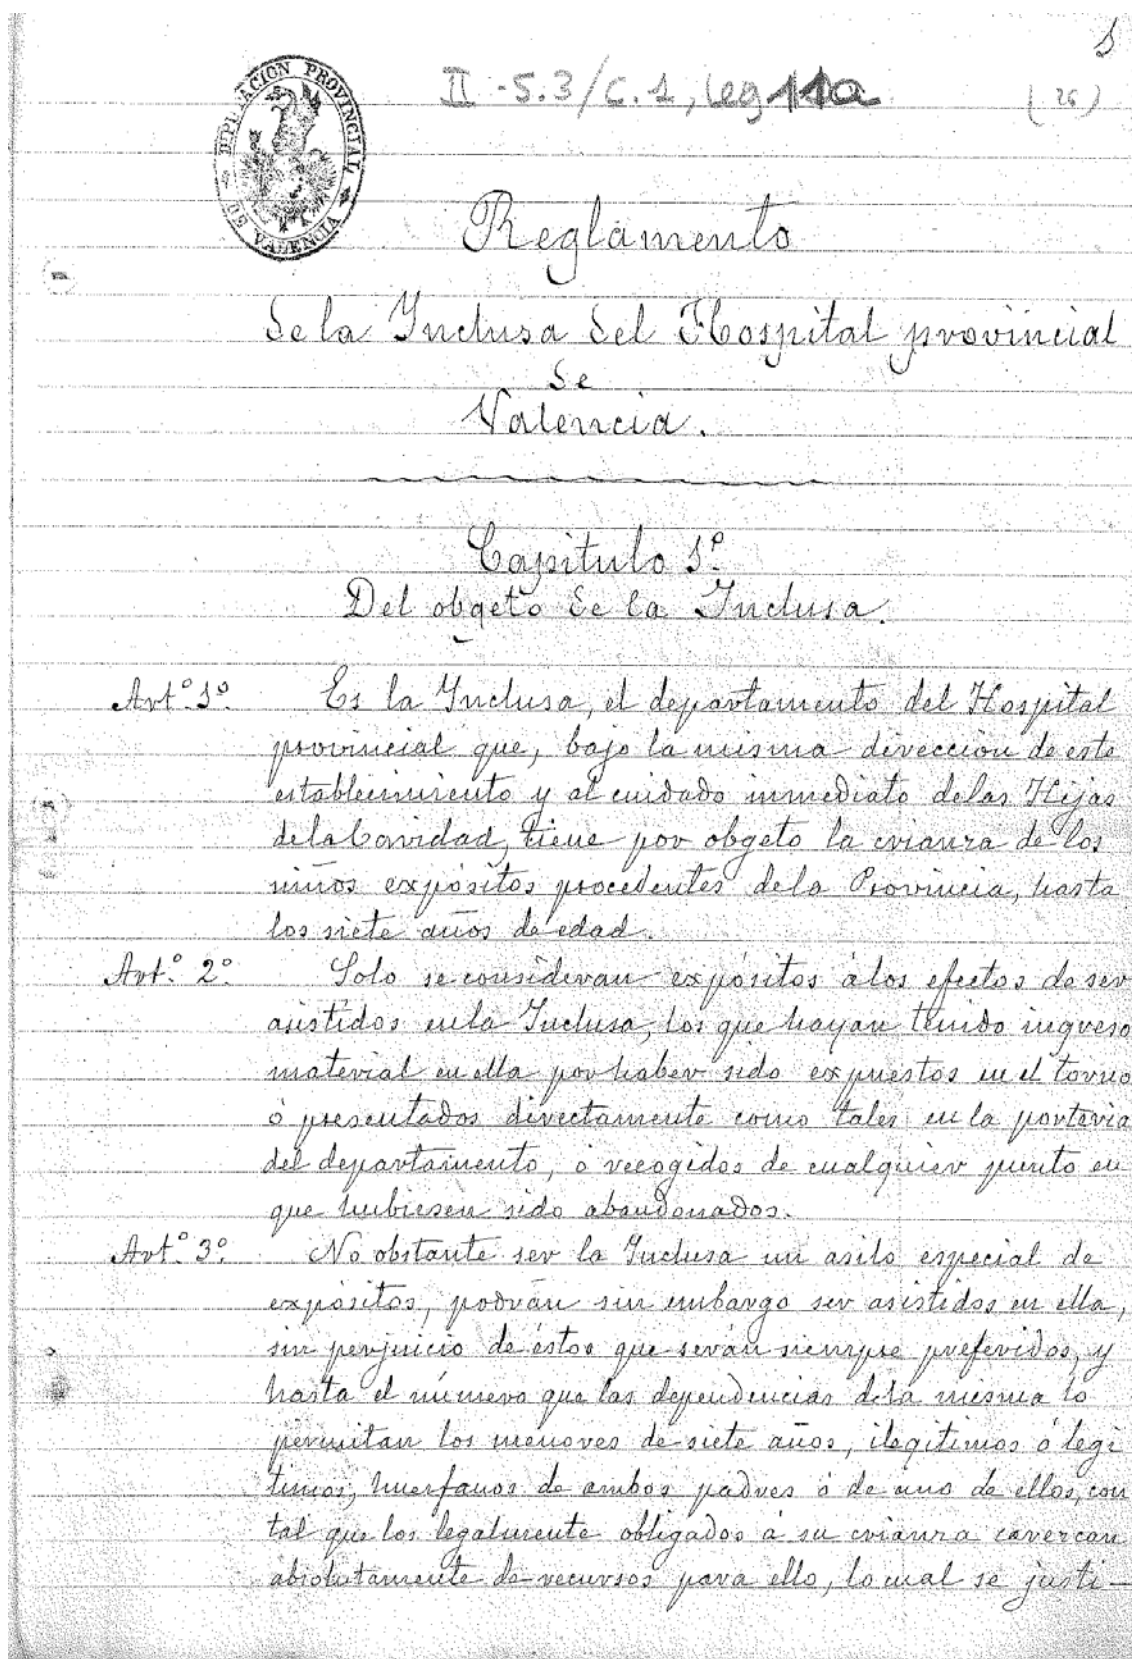 1
II-5.3/C.1, leg 11a
(26)
DIPUTACION PROVINCIAL
DE VALENCIA
Reglamento
de la Inclusa del Hospital provincial
de
Valencia.
Capitulo 1º
Del obgeto de la Inclusa.
Artº 1º Es la Inclusa, el departamento del Hospital
provincial que, bajo la misma dirección de este
establecimiento y al cuidado inmediato delas Hijas
dela Caridad, tiene por obgeto la crianza de los
niños expósitos procedentes dela Provincia, hasta
los siete años de edad.
Artº 2º Solo se consideran expósitos álos efectos de ser
asistidos enla Inclusa, los que hayan tenido ingreso
material en ella por haber sido expuestos en el torno
ó presentados directamente como tales en la porteria
del departamento, ó recogidos de cualquier punto en
que hubiesen sido abandonados.
Artº 3º No obstante ser la Inclusa un asilo especial de
expósitos, podrán sin embargo ser asistidos en ella,
sin perjuicio de éstos que serán siempre preferidos, y
hasta el número que las dependencias dela misma lo
permitan los menores de siete años, ilegitimos ó legi
timos, huerfanos de ambos padres ó de uno de ellos, con
tal que los legalmente obligados á su crianza carezcan
absolutamente de recursos para ello, lo cual se justi-